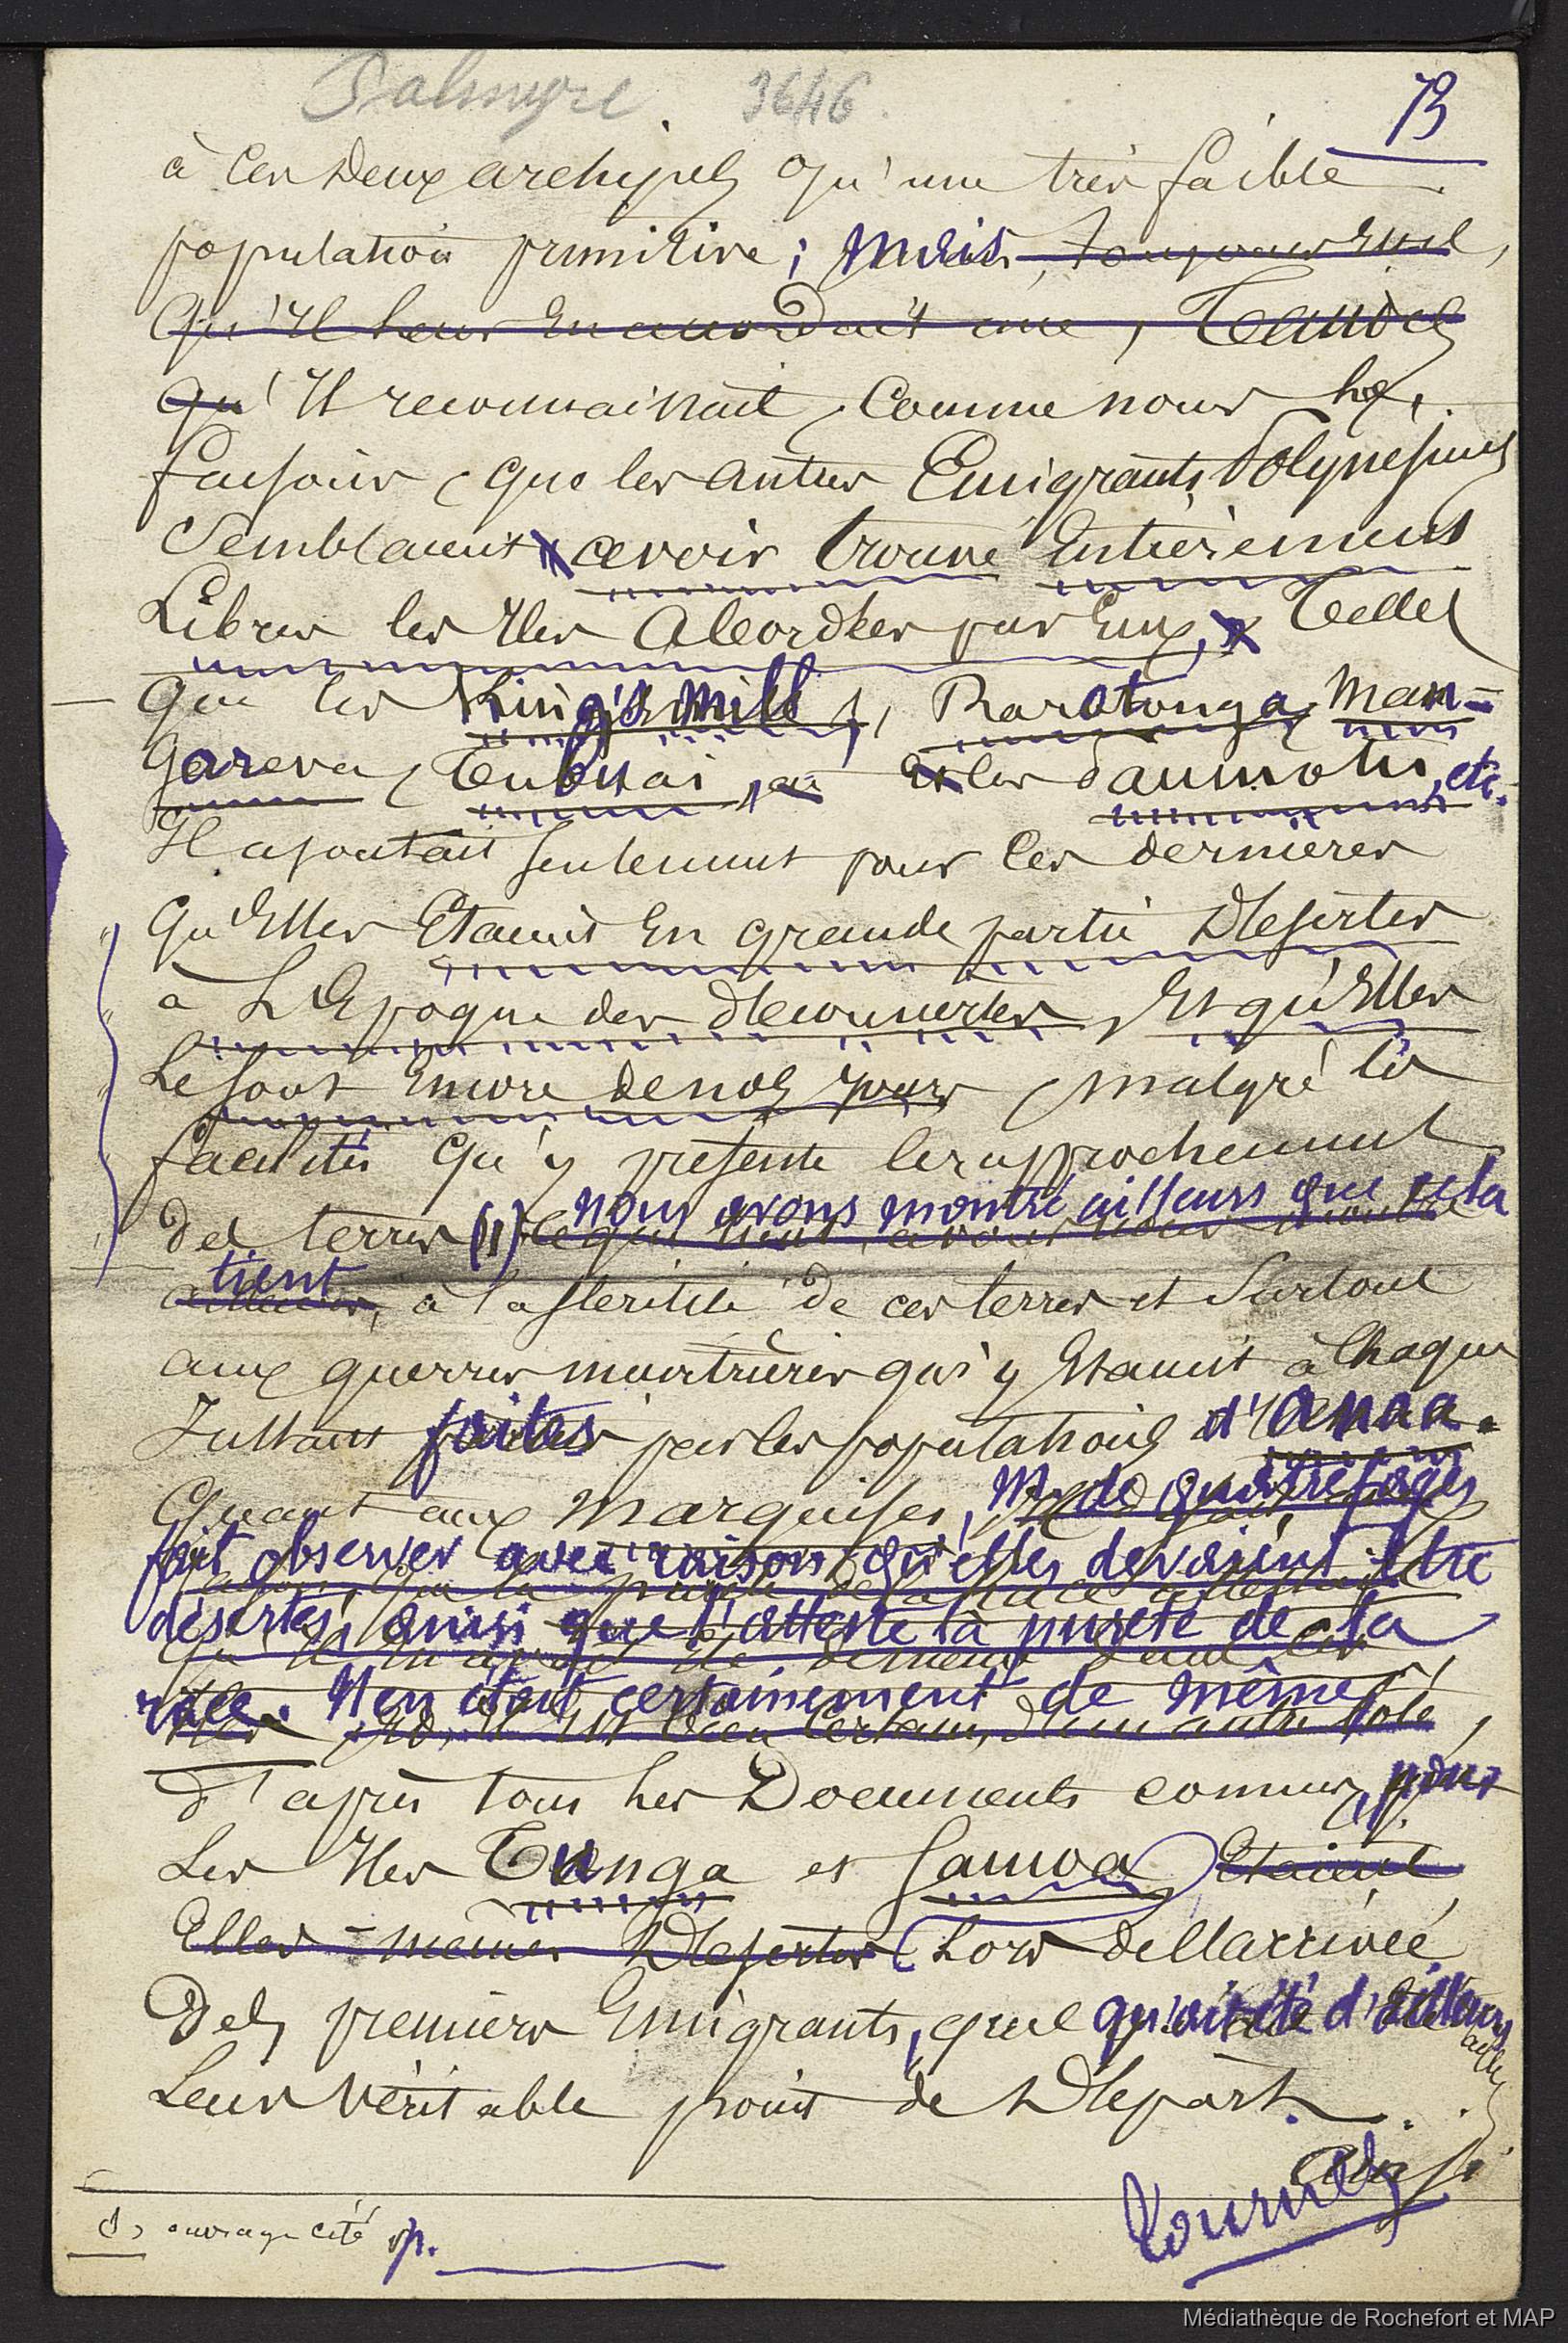 Palmyre 3646.
73
à ces deux archipels qu'une très faible
population primitive ; mais
qu'il leur en accordait une,
qu'il reconnaissait, comme nous le
faisons, que les autres Emigrants Polynésiens
semblaient avoir trouvé entièrement
libres les îles abordées par eux, telles
que les King's mill, Rarotonga, Man-
gareva, Tubuai, et les Paumotu, etc.
Il ajoutait seulement pour ces dernières
qu'elles étaient en grande partie désertes
à l'Epoque des découvertes, et qu'elles
le sont encore de nos jours, malgré les
facilités qu'y présente le rapprochement
des terres (1) nous avons montré ailleurs que cela
tient à la stérilité de ces terres et surtout
aux guerres meurtrières qui y étaient à chaque
instant faites par les populations d'Anaa.
Quant aux Marquises, Mr de Quatrefages
fait observer avec raison qu'elles devaient être
désertes, ainsi que l'atteste la pureté de la
race. Il en était certainement de même,
d'après tous les Documents connus, pour
les îles Tunga et Samoa étaient
Elles-mêmes désertes lors de l'arrivée
des premiers Emigrants, quel qu'ait été d'ailleurs
leur véritable point de départ.
Ainsi
tournez
(1) ouvrage cité p.
Médiathèque de Rochefort et MAP